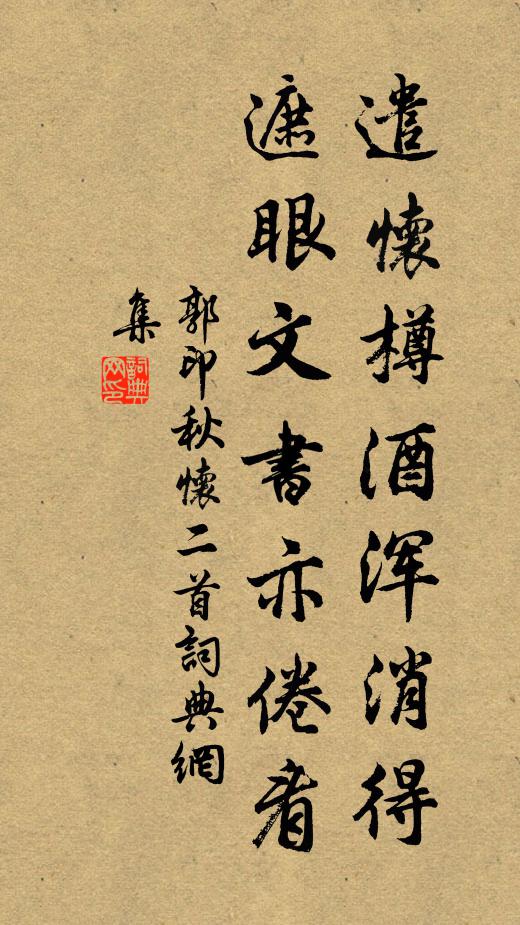 遣懷樽酒渾消得
遮眼文書亦倦看
郭印秋懷二首詞典網
集
詞典网印